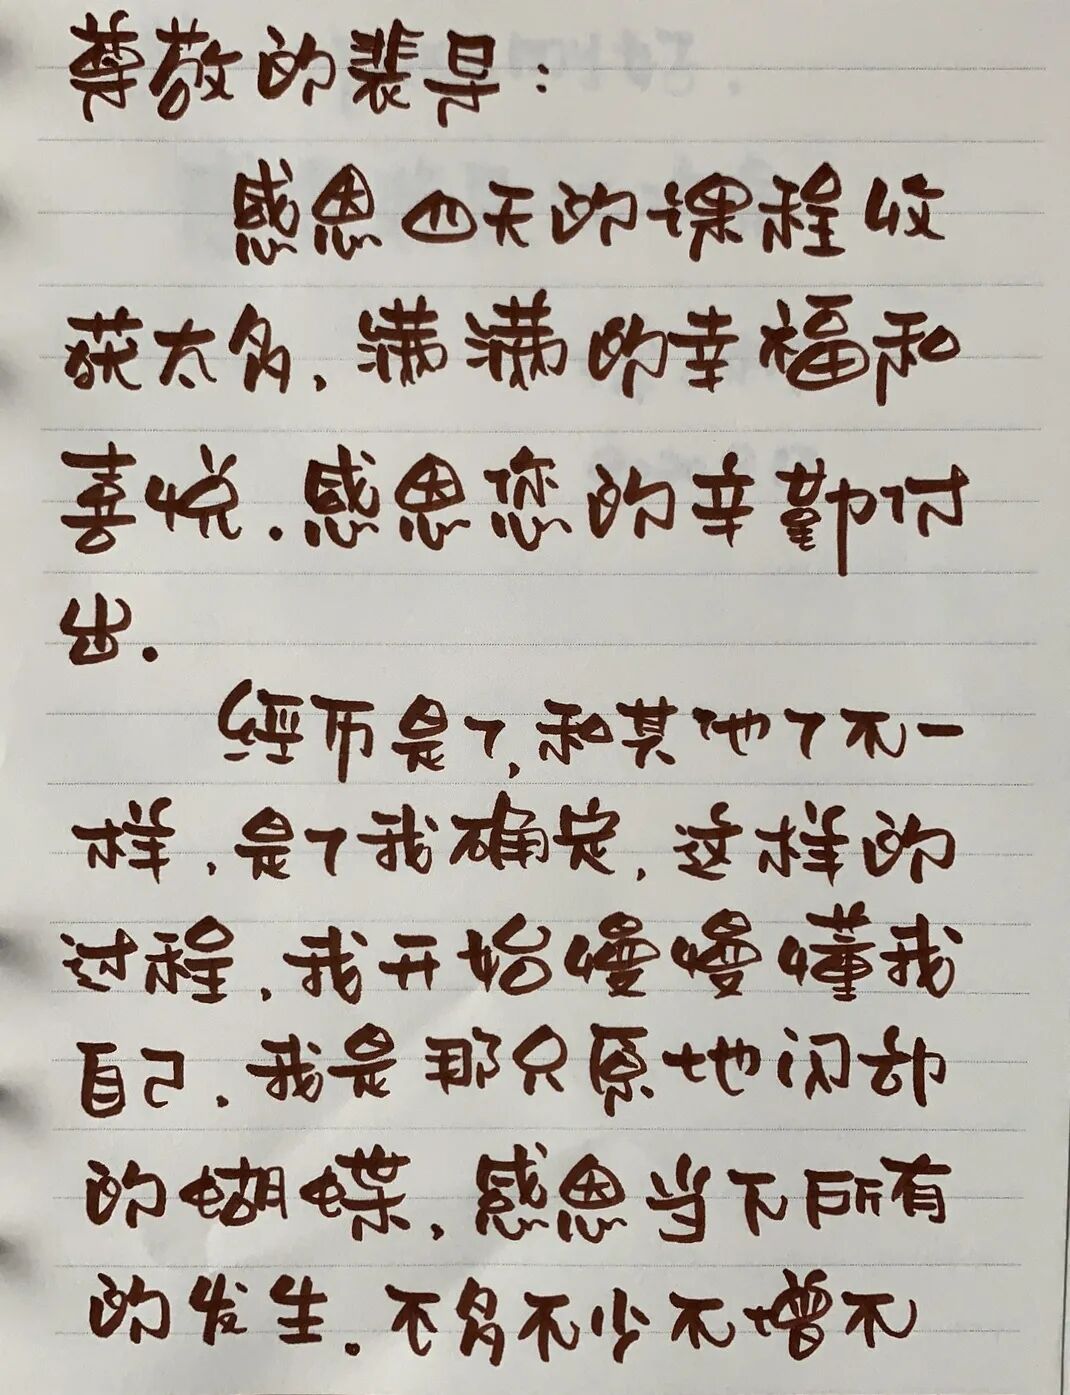 尊敬的裴早：
感恩四天的课程收
获太多，满满的幸福和
喜悦.感恩您的辛勤付
出.
经历是了,和其他了不一
样，是了我确定，这样的
过程，我开始慢慢懂我
自己，我是那只原地闪动
的蝴蝶，感恩当下所有
的发生.不多不少不增不